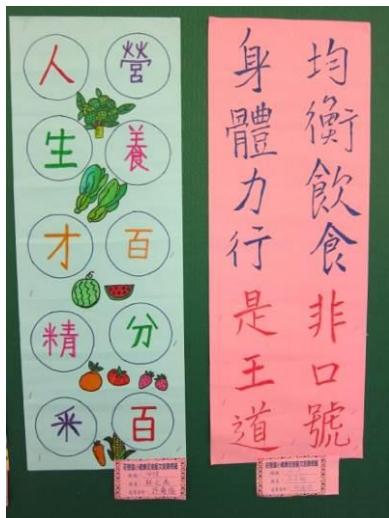 營養百分百
人生才精采
均衡飲食非口號
身體力行是王道